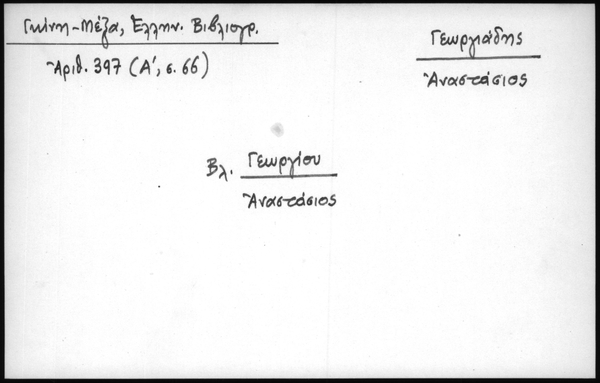 Γκίνη-Μέξα, Ἑλλην. Βιβλιογρ.
Ἀριθ. 397 (Α', σ. 66)
Γεωργιάδης
Ἀναστάσιος
Βλ. Γεωργίου
Ἀναστάσιος